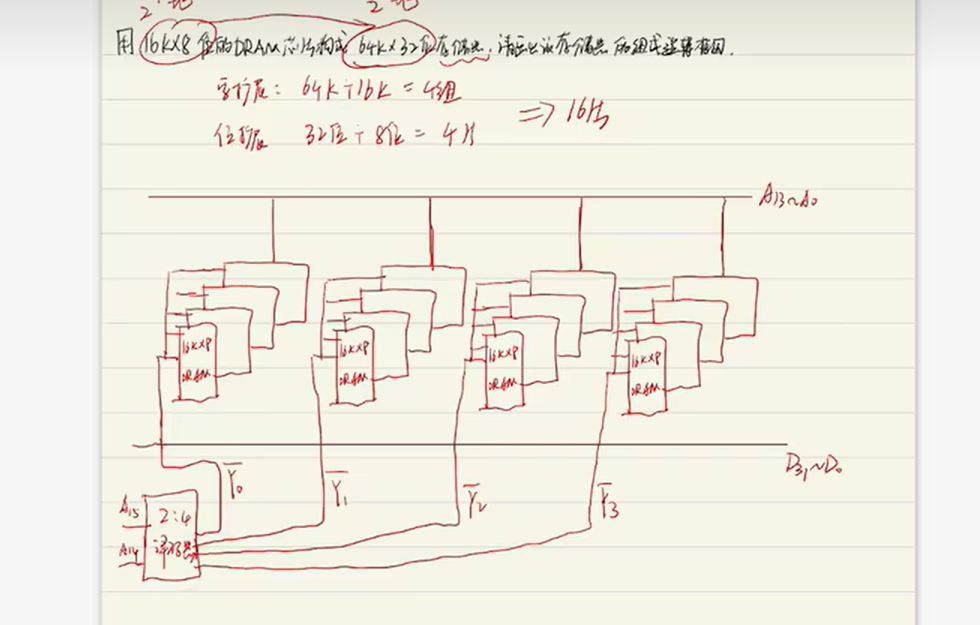 用 16K×8 位的DRAM芯片构成 64K×32位存储器, 请画出该存储器的组成逻辑框图.
字扩展: 64K÷16K = 4组
位扩展 32位÷8位 = 4片
⇒ 16片
A13~A0
16K×8 DRAM
16K×8 DRAM
16K×8 DRAM
16K×8 DRAM
D31~D0
Y̅0 Y̅1 Y̅2 Y̅3
A15
2:4
译码器
A14